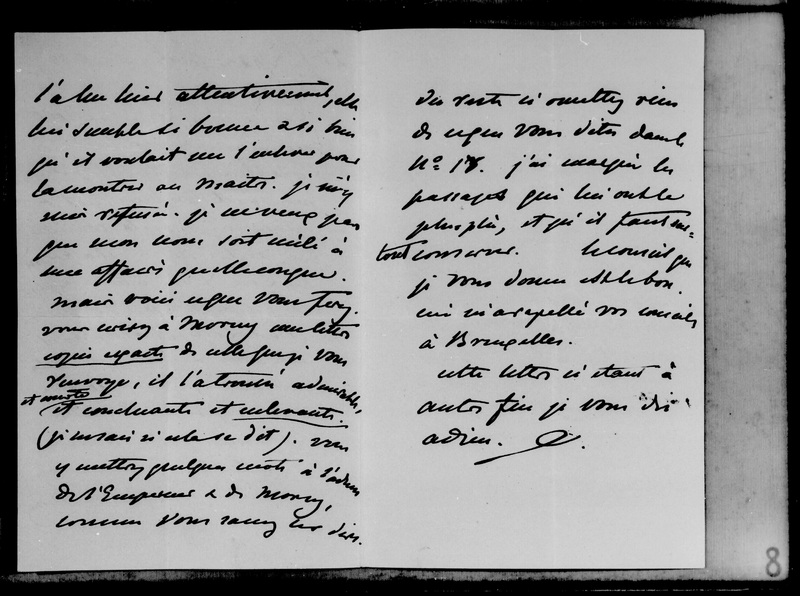 l'a lue hier attentivement, elle
lui semble si bonne & si bien
qu'il voulait me l'enlever pour
la montrer au maitre. je m'y
suis refusé. je ne veux pas
que mon nom soit mêlé à
une affaire quelconque.
mais voici ce que vous ferez.
vous écrirez à Morny une lettre
copie exacte de celle que je vous
renvoye, il l'a trouvée admirable,
et concluante et
et adroite
(je ne sais si cela se dit). vous
y mettrez quelques mots à l'adresse
de l'Empereur & de Morny,
comme vous savez les dire.
du reste n'omettez rien
de ce que vous dites dans le
No. 18. j'ai marqué les
passages qui lui ont le
plus plu, et qu'il faut sur-
tout conserver. le conseil que
je vous donne est le bon.
à Bruxelles.
cette lettre n'étant à
autre fin je vous dis
adieu.
8